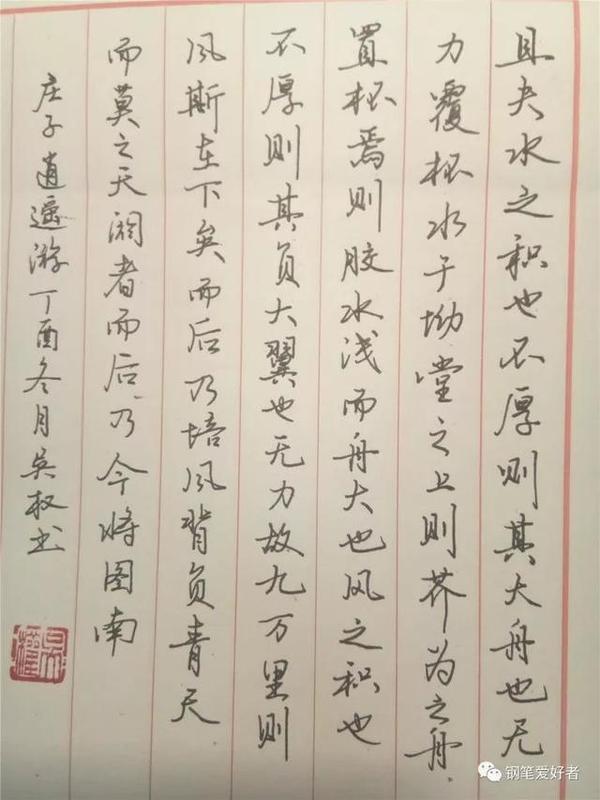 且夫水之积也不厚则其大舟也无
力覆杯水于坳堂之上则芥为之舟
置杯焉则胶水浅而舟大也风之积也
不厚则其负大翼也无力故九万里则
风斯在下矣而后乃培风背负青天
而莫之夭阏者而后乃今将图南
庄子逍遥游丁酉冬月吴权书
吴權
钢笔爱好者